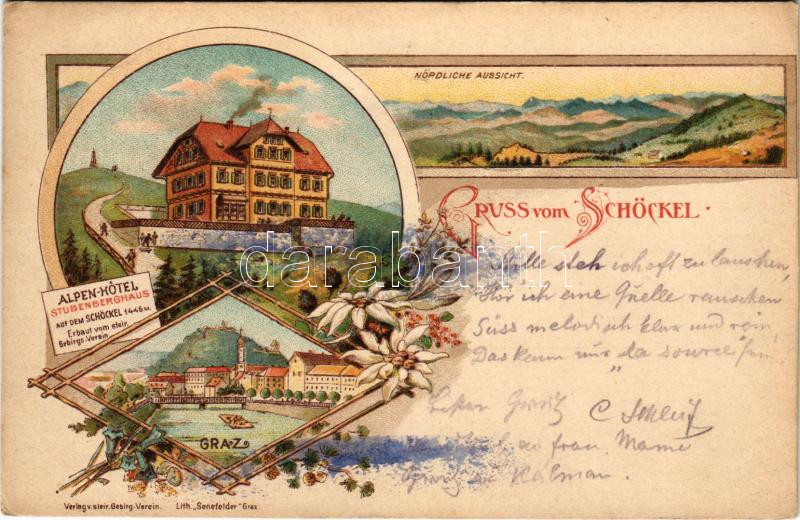 NÖRDLICHE AUSSICHT.
GRUSS vom SCHÖCKEL.
ALPEN-HÔTEL
STUBENBERGHAUS
AUF DEM SCHÖCKEL 1446 M.
Erbaut vom steir.
Gebirgs-Verein
GRAZ
darabanth
steh ich oft zu lauschen,
Hör ich eine Quelle rauschen
Süss melodisch klar und rein,
Das kann nur "la source" sein.
an frau Mama
Kálmán.
Verlag v. steir. Gebirg.-Verein. Lith. „Senefelder" Graz